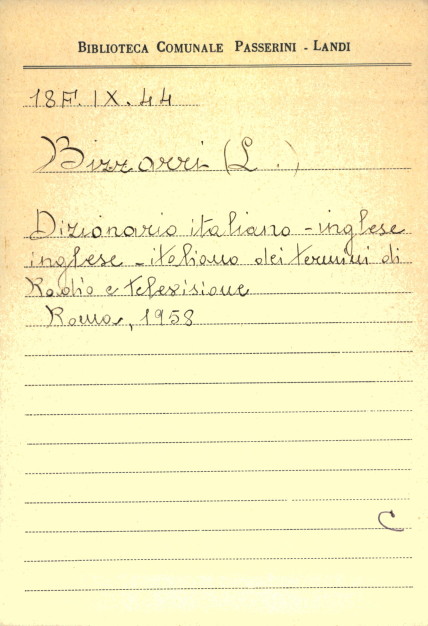 BIBLIOTECA COMUNALE PASSERINI - LANDI
18F.IX.44
Bizzarri (L.)
Dizionario italiano - inglese
inglese - italiano dei termini di
Radio e televisione
Roma, 1958
C